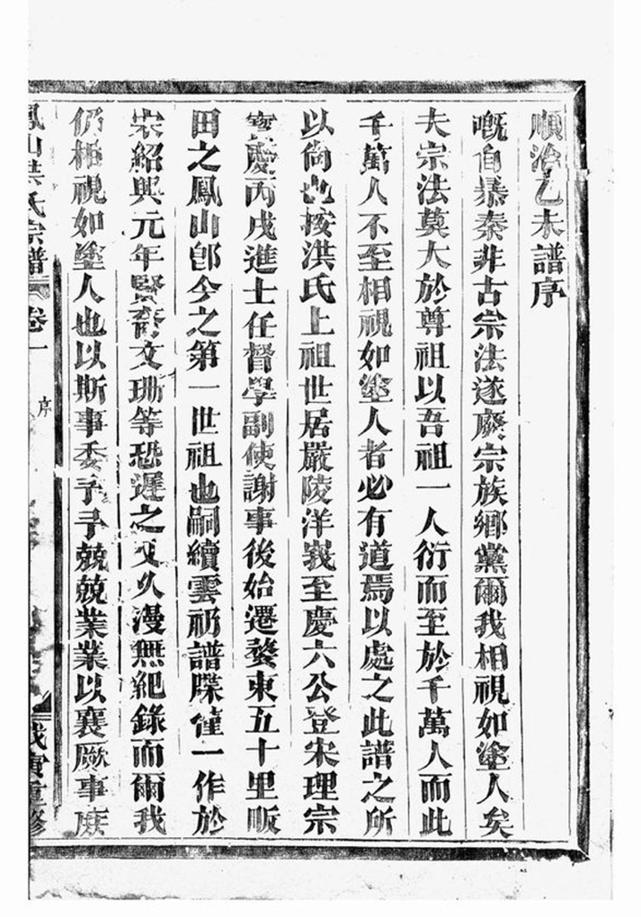 順治乙未譜序
嘅自暴秦非古宗法遂廢宗族鄉黨爾我相視如塗人矣
夫宗法莫大於尊祖以吾祖一人衍而至於千萬人而此
千萬人不至相視如塗人者必有道焉以處之此譜之所
以尚也按洪氏上祖世居嚴陵洋峩至慶六公登宋理宗
寶慶丙戌進士任督學副使謝事後始遷婺東五十里畈
田之鳳山卽今之第一世祖也嗣續雲礽譜牒僅一作於
宋紹興元年賢裔文珊等恐遲之又久漫無紀錄而爾我
仍相視如塗人也以斯事委予予兢兢業業以襄厥事族
鳳山洪氏宗譜 卷一 序 重修